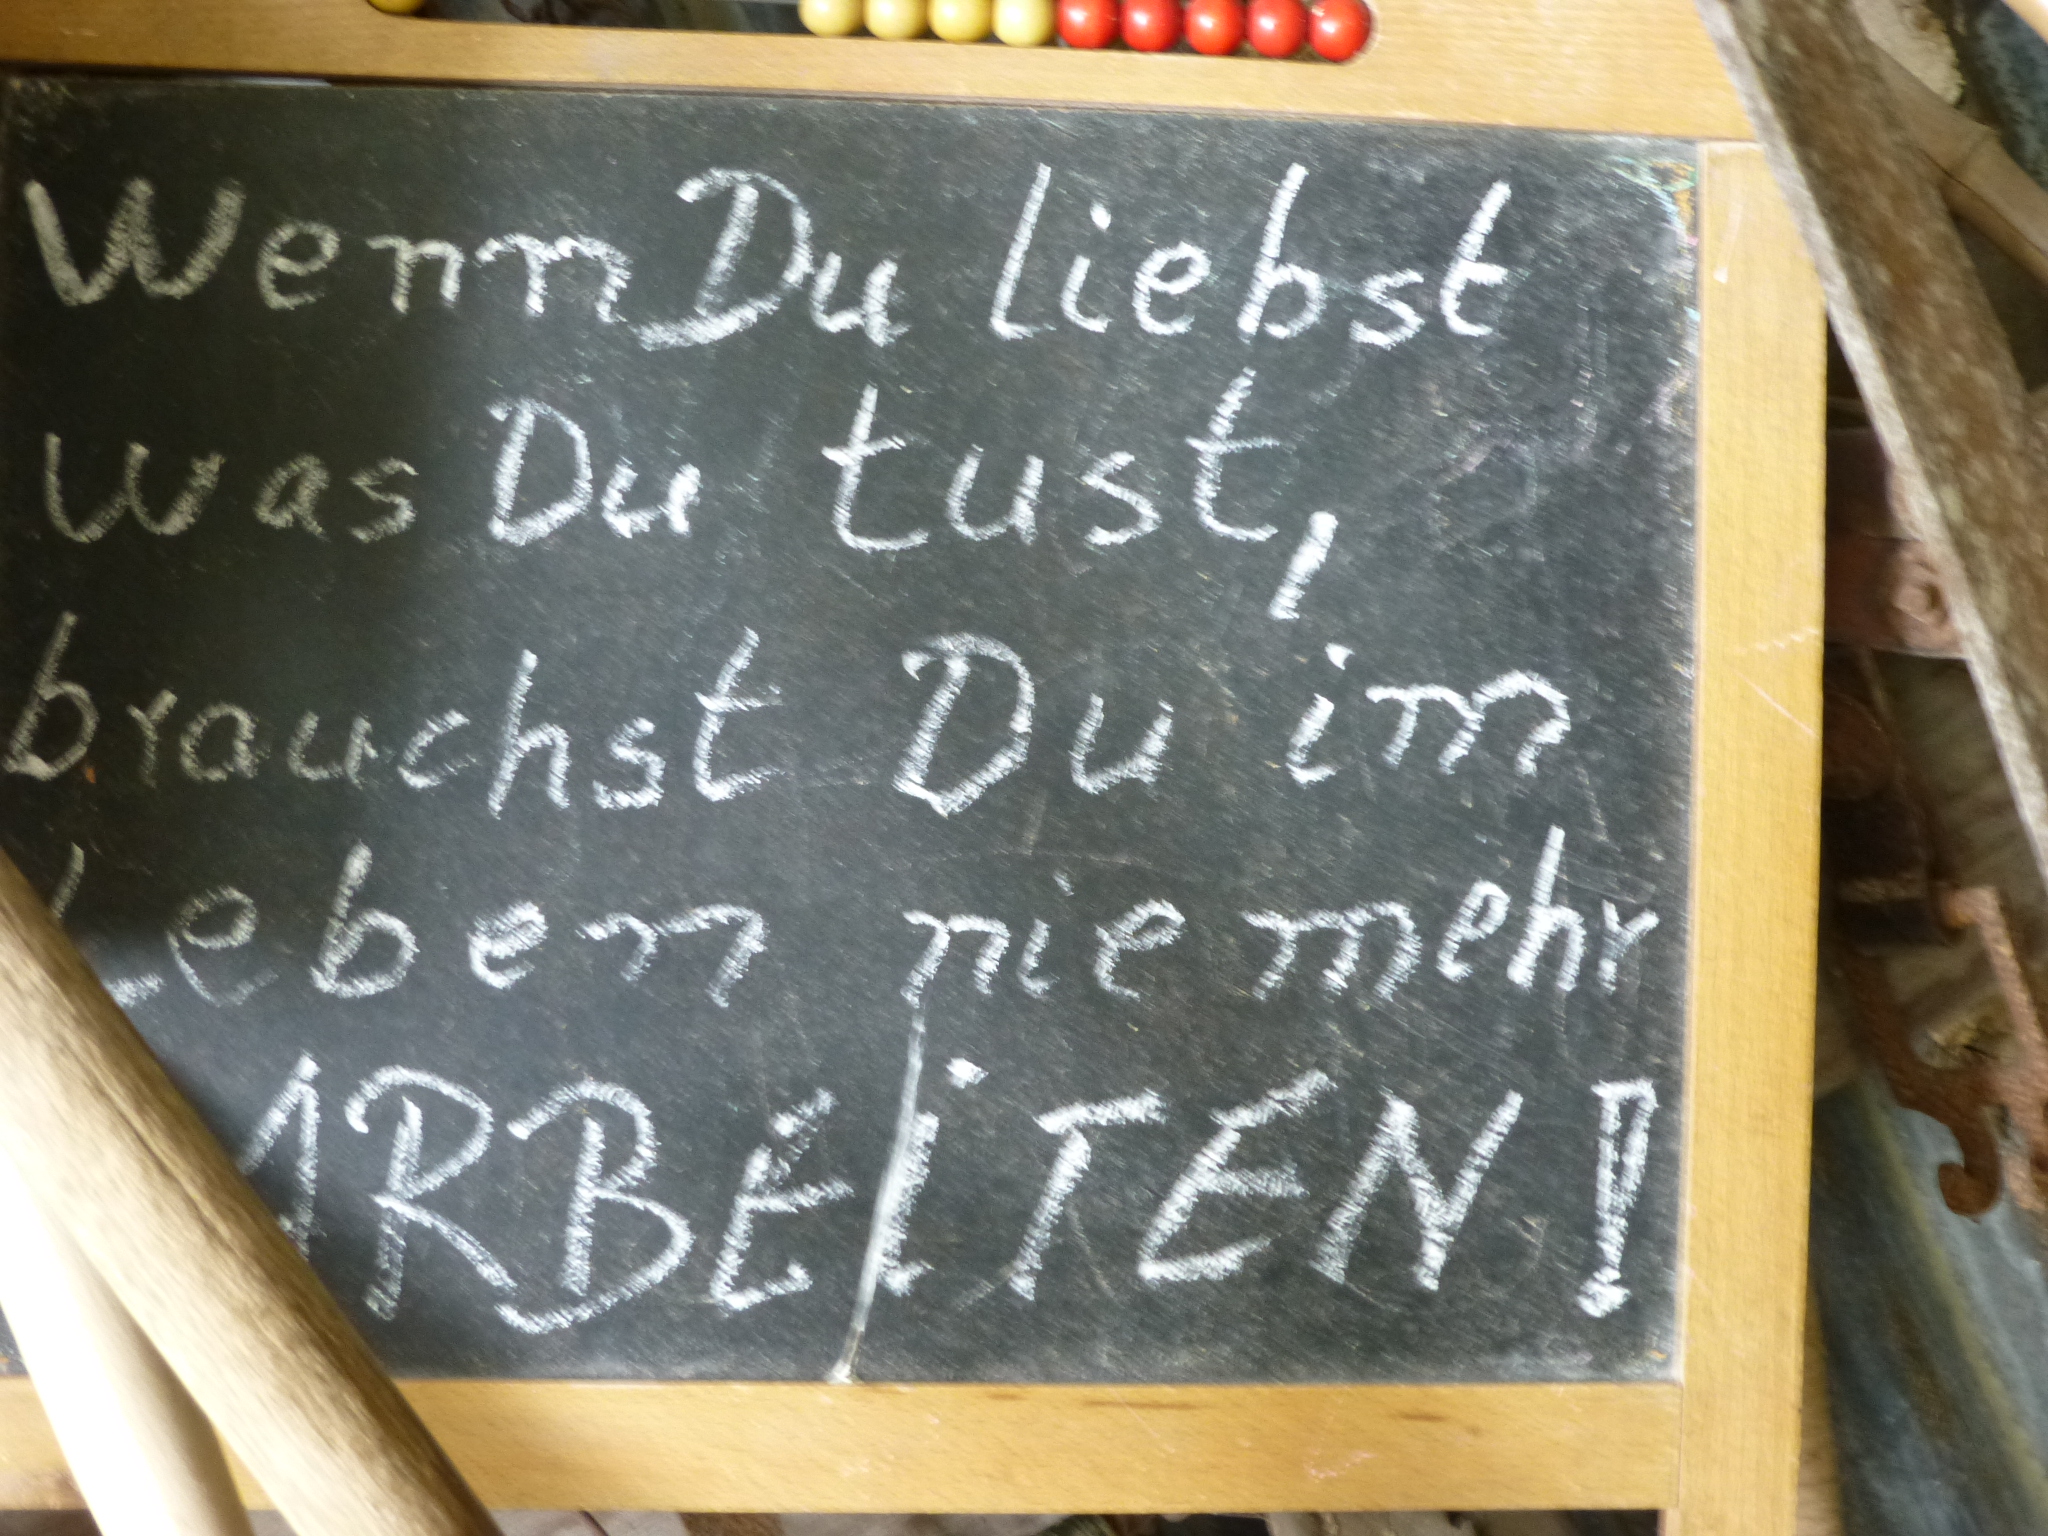 Wenn Du liebst
was Du tust,
brauchst Du im
Leben nie mehr
ARBEiTEN!